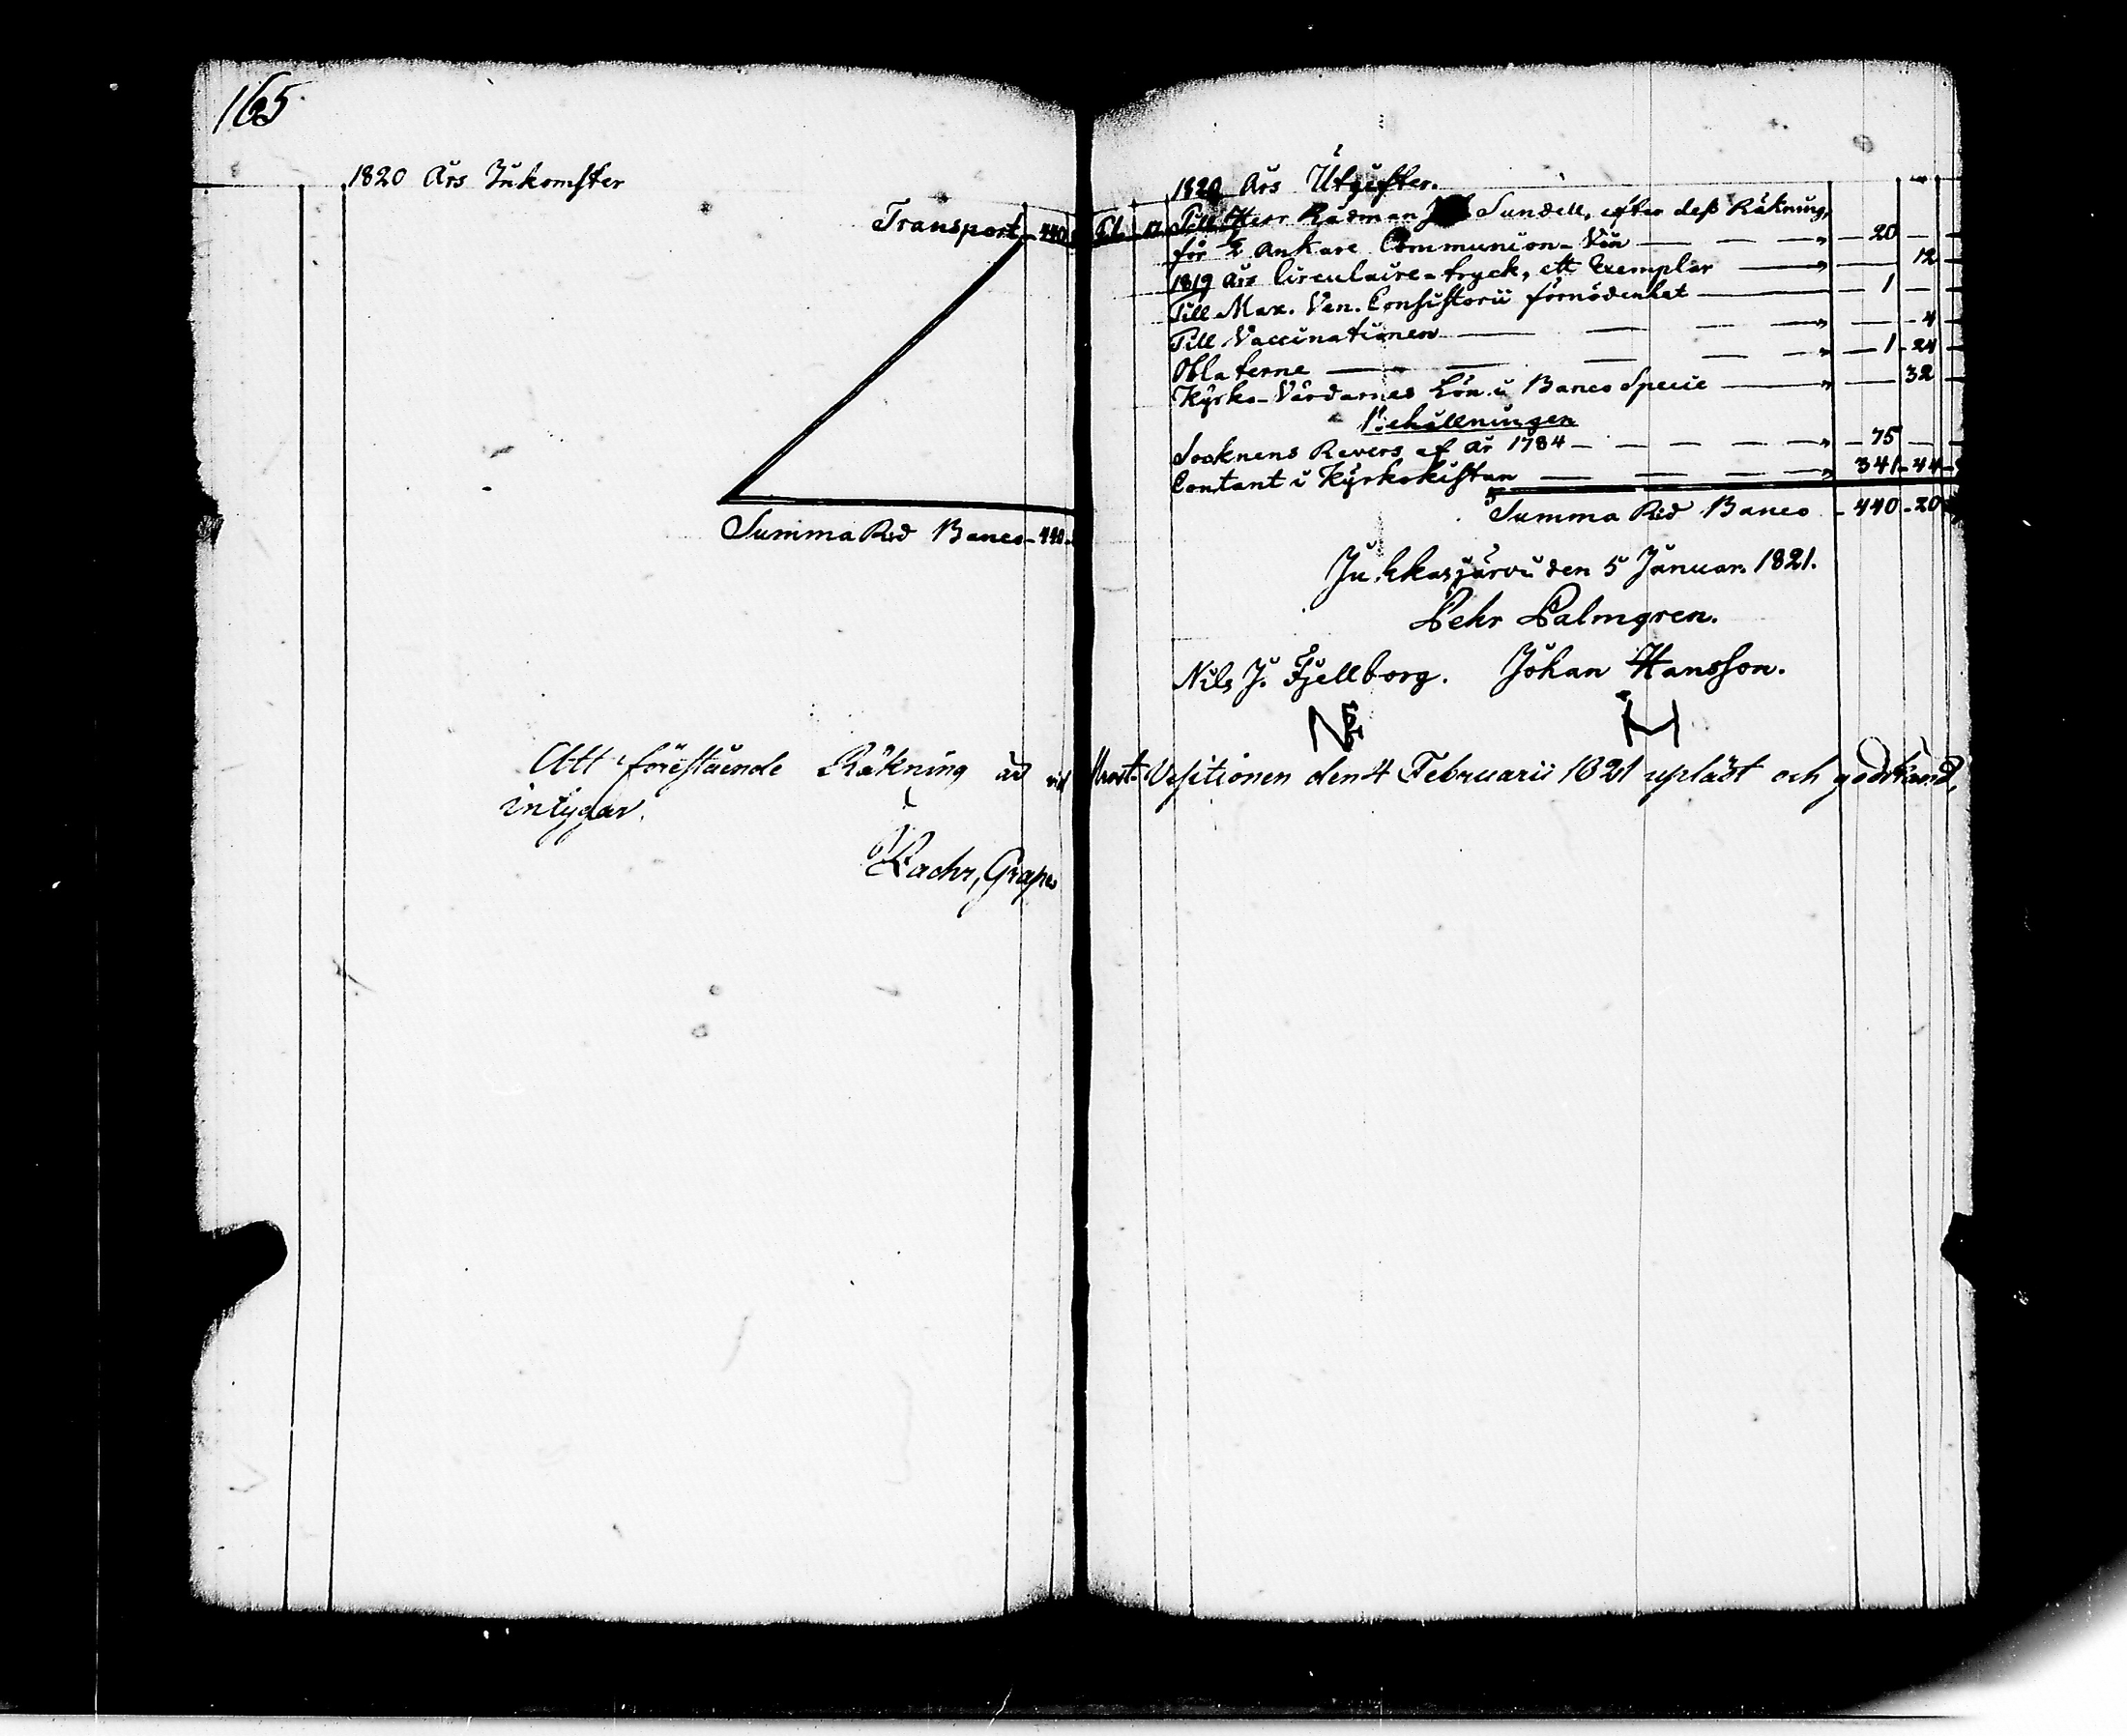 165
1820 Års Inkomster
Transport 440
Summa Rd Banco 440
1820 Års Utgifter.
Till Herr Rådman Sundell, efter dess Räkning,
för ½ Ankare Communion-Vin 20
1819 års Circulaire-tryck, ett Exemplar 12
Till Max. Ven. Consistorii förnödenhet 1
Till Vaccinationen 4
Oblaterne 1 24
Kyrko-Värdarnes Lön i Banco Specie 32
Behållningen
Socknens Revers af år 1784 75
Contant i Kyrkokistan 341 44
Summa Rd Banco 440 20
Jukkasjärvi den 5 Januar. 1821.
Pehr Palmgren.
Nils J. Fjellborg. Johan Hansson.
Att förestående Räkning är vid Prost-Visitionen den 4 Februarii 1821 upläst och godkänd,
intygar.
Zachr, Grape